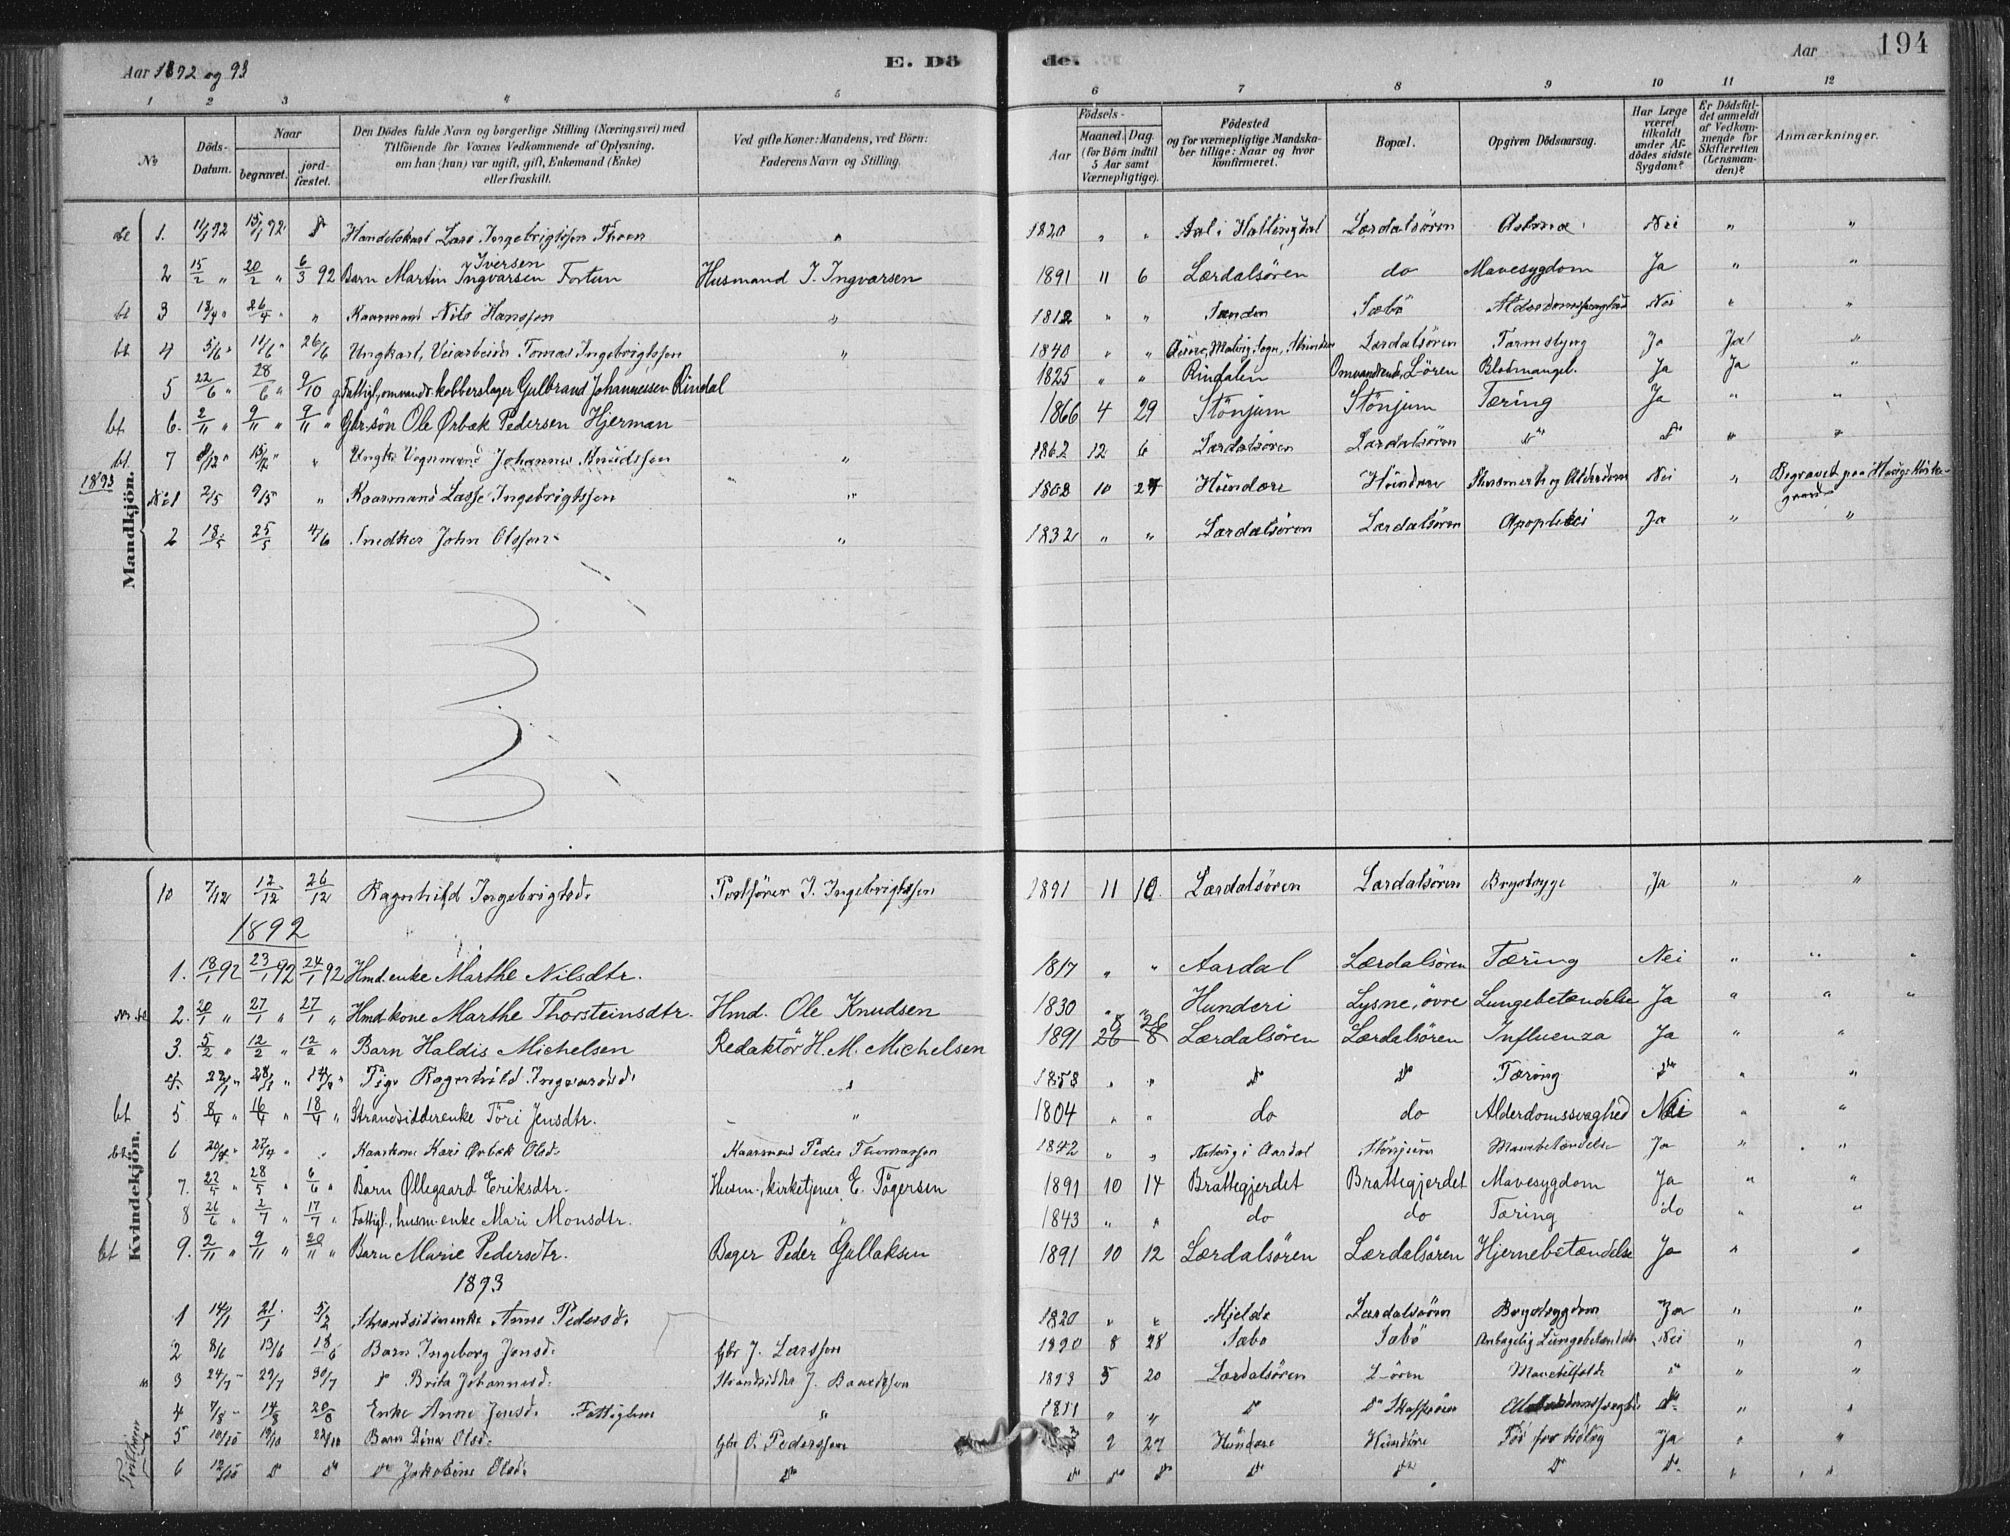 Aar 1892 og 93
E. Dö
de.
Aar
194
1 2 3 4 5
6 7 8 9 10 11 12
No
Döds-Datum.
Naar
begravet.
jord-fæstet.
Den Dödes fulde Navn og borgerlige Stilling (Næringsvei) med
Tilföiende for Voxnes Vedkommende af Oplysning,
om han (hun) var ugift, gift, Enkemand (Enke)
eller fraskilt.
Ved gifte Koner: Mandens, ved Börn:
Faderens Navn og Stilling.
Födsels-
Aar
Maaned. Dag.
(for Börn indtil
5 Aar samt
Værnepligtige).
Födested
og for værnepligtige Mandska-
ber tillige: Naar og hvor
konfirmeret.
Bopæl.
Opgiven Dödsaarsag.
Har Læge
været
tilkaldt
under Af-
dödes sidste
Sygdom?
Er Dödsfal-
det anmeldt
af Vedkom-
mende for
Skifteretten
(Lensman-
den)?
Anmærkninger.
Mandkjön.
1. 11/1 92 15/1 92 Handelskarl Lars Ingebrigtssen Thoen " 1820 " " Aal i Hallingdal Lærdalsören Astma Nei " "
Iversen
2 15/2 " 20/2 " 6/3 92 Barn Martin Ingvarsen Fortun Husmand I. Ingvarsen 1891 11 6 Lærdalsören do Mavesygdom Ja " "
3 26/4 " " Kaarmand Nils Hanssen " 1812 " " Sæbö Nei " "
bt 4 5/6 " 11/6 " 26/6 Ungkarl, Veiarbeider Tomas Ingebrigtssen " 1840 " " Lærdalsören Ja Ja "
5 22/6 " 28/6 " 9/10 Fattigl., omvandr. kobberslager Gulbrand Johannessen Rindal 1825 " " Rindalen Omvandrende, L-ören Blodmangel. Ja Ja "
bt. 6. 2/11 " 9/11 " 9/11 " Gbr.sön Ole Ørbæk Pedersen Hjerman 1866 4 29 Stönjum Stönjum Tæring Ja " "
bt. 7 8/12 " 15/12 " " Johannes Knudssen " 1862 12 6 Lærdalsören Lærdalsören do do " "
1893
No 1 2/5 9/5 " Kaarmand Lasse Ingebrigtssen " 1808 10 Hundere Hundere Nei " Begravet paa Hauge Kirke-
gaard
2 18/5 25/5 4/6 Snedker John Olssen " 1832 " " Lærdalsören Lærdalsören Apoplexi Ja "
Kvindekjön.
10 7/12 12/12 26/12 Ragnhild Ingebrigtsd. Postförer I. Ingebrigtssen 1891 11 10. Lærdalsören Lærdalsören Brystsyge Ja " "
1892
1. 18/1 92 23/1 92 24/1 92 Hmd.enke Marthe Nilsdtr. 1817 " " Aardal Lærdalsören Tæring Nei " " "
2. 20/1 " 27/1 " 27/1 " Hmd.kone Marthe Thorsteinsdtr. Hmd. Ole Knudsen 1830 " " Hunderi Lysne, övre Lungebetændelse Ja " " "
3. 5/2 " 12/2 " 12/2 " Barn Haldis Michelsen Redaktör H. M. Michelsen 1891 8 28 Lærdalsören Lærdalsören Influenza Ja " "
4. Pige Ragnhild Ingvarsd. " 1858 " " do do Tæring do " "
bt 5. 8/4 " 16/4 " 18/4 " Strandsidderenke Töri Jensdtr. " 1804 " " do do Alderdomssvaghed Nei " "
bt. 6 20/4 " 27/4 " " Kaarkone Kari Ørbæk Olsd. Kaarmand Peder Thomassen 1842 " " i Aardal Stönjum Mavebetændelse Ja " "
7. 22/5 " 28/5 " 6/6 " Barn Øllegaard Eriksdtr. Husm., kirketjener E. Tögersen 1891 10 14 Brattegjerdet Brattegjerdet Mavesygdom Ja " "
8 26/6 " 2/7 " 17/7 " Fattigl., husm.enke Mari Monsdtr. " 1843 " " do do Tæring do " "
bt 9. 2/11 " 9/11 " 20/11 " Barn Marie Pedersdtr. Bager Peder Gullaksen 1891 10 12 Lærdalsören Lærdalsören Hjernebetændelse Ja " "
1893
1 14/1 21/1 5/2 Strandsidderenke Anne Pedersd. 1820 " " Hjelde Lærdalsören Brystsygdom Ja " "
2 8/6 13/6 18/6 Barn Ingeborg Jensd. Gbr J. Larssen 1890 8 28 Sæbö Sæbö Antagelig Lungebetændelse Nei " "
3 24/7 29/7 30/7 do Brita Johannesd. Strandsidder J. 1893 5 20 Lærdalsören L-ören do " "
4 7/8 14/8 20/8 Enke Anne Jensd. Fattiglem " 1811 " " do do do " "
Tvilling
5 10/10 19/10 22/10 Barn Dina Olsd. Gbr O. Pederssen 2 27 Hundere Hundere Ja " "
6 12/10 do do do Jakobine Olsd. do do do do do do do do " "